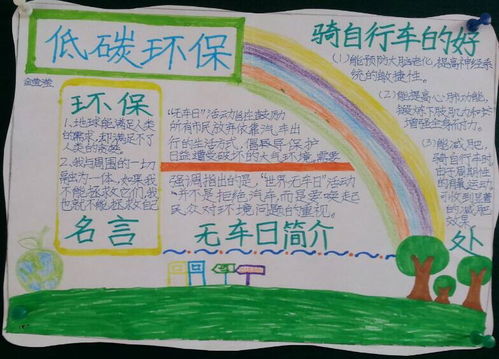 低碳环保
环保
1.地球能满足人类
的需求,却满足不了
人类的贪婪
2.我与周围的一切
融为一体,如果我
不能拯救它们,我
也就不能拯救自己
名言
"无车日"活动旨在鼓励
所有市民放弃依靠汽车出
行的生活方式,倡导保护
日益遭受破坏的大气环境,需要
强调指出的是,"世界无车日"活动
并不是拒绝汽车,而是要唤起
民众对环境问题的重视。
无车日简介
骑自行车的好
(1)能预防大脑老化,提高神经系
统的敏捷性。
(2)能提高心肺功能,
锻炼下肢肌力和
增强全身耐力。
(3)能减肥,
骑自行车时
由于周期性
的有氧运动,
可收到显著
的减肥
效果
处